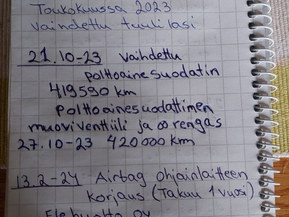 Toukokuussa 2023
vaihdettu tuulilasi
21.10-23 vaihdettu
polttoainesuodatin
419590 km
Polttoainesuodattimen
muoviventtiili ja ∞ rengas
27.10-23 420000 km
13.2-24 Airbag ohjainlaitteen
korjaus (Takuu 1 vuosi)